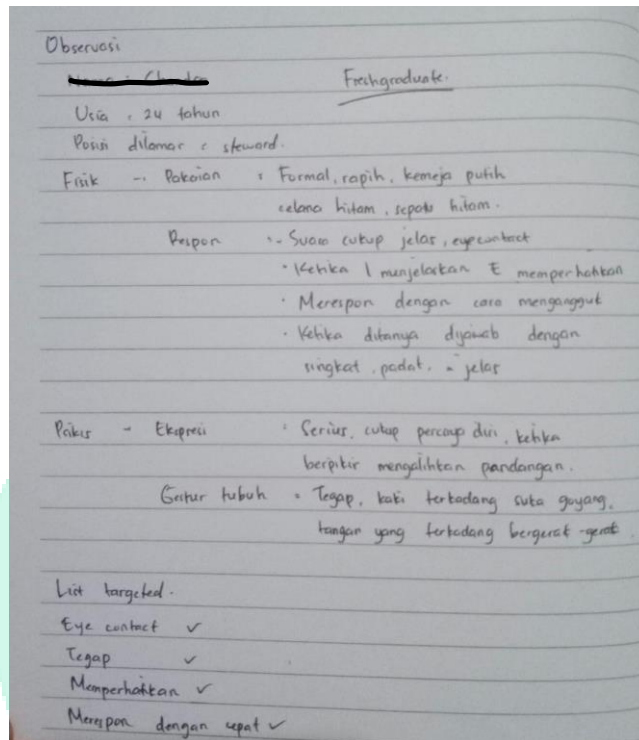 Observasi
Freshgraduate.
Usia : 24 tahun
Posisi dilamar : steward.
Fisik - Pakaian : Formal, rapih, kemeja putih
celana hitam, sepatu hitam.
Respon : - Suara cukup jelas, eyecontact
• Ketika I menjelaskan E memperhatikan
• Merespon dengan cara mengangguk
• Ketika ditanya dijawab dengan
singkat, padat, jelas
Psikis - Ekspresi : Serius, cukup percaya diri, ketika
berpikir mengalihkan pandangan.
Gestur tubuh : Tegap, kaki terkadang suka goyang,
tangan yang terkadang bergerak-gerak.
List targeted.
Eye contact ✓
Tegap ✓
Memperhatikan ✓
Merespon dengan cepat ✓